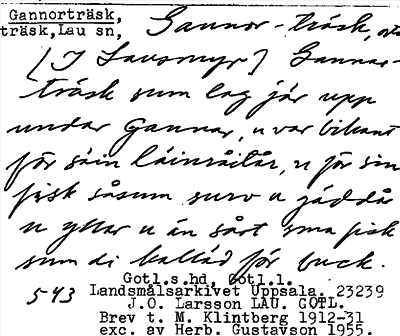 Gannorträsk,
träsk, Lau sn, Gannor-träsk,
[I Lausmyr] Gannar-
träsk sum lag jär upp
undar Gannar, u var bikant
för sin läinråitår, u för sin
fisk såsum surv u gäddår
u yttar u än sårt sma fisk
sum di kallád för buck.
Gotl.s.hd, Gotl.l.
543 Landsmålsarkivet Uppsala. 23239
J.O. Larsson LAU. GOTL.
Brev t. M. Klintberg 1912-31
exc. av Herb. Gustavson 1955.